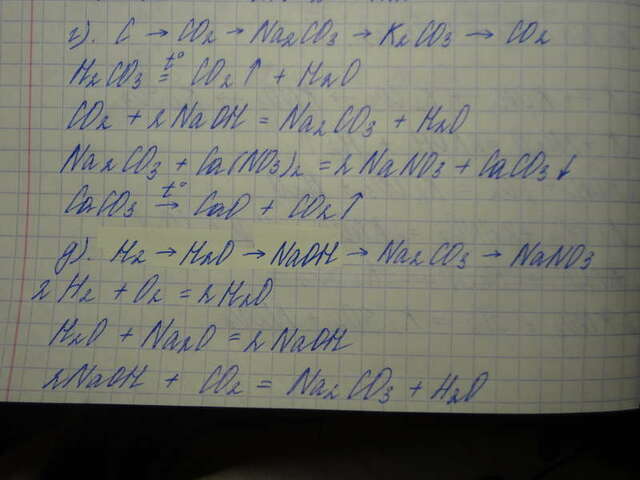 г). C → CO2 → Na2CO3 → K2CO3 → CO2
H2CO3 t°= CO2↑ + H2O
CO2 + 2NaOH = Na2CO3 + H2O
Na2CO3 + Ca(NO3)2 = 2NaNO3 + CaCO3↓
CaCO3 t°→ CaO + CO2↑
д). H2 → H2O → NaOH → Na2CO3 → NaNO3
2H2 + O2 = 2H2O
H2O + Na2O = 2NaOH
2NaOH + CO2 = Na2CO3 + H2O